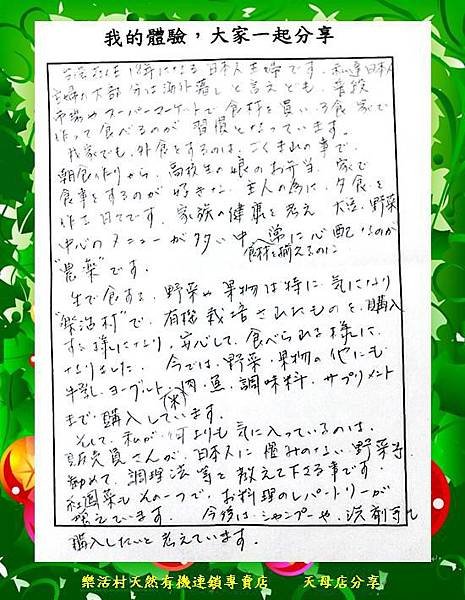 我的體驗，大家一起分享
台湾在住12年になる日本人主婦です。私達日本人
主婦の大部分は海外暮しと言えども、普段
市場やスーパーマーケットで食材を買い、家で
作って食べるのが習慣となっています。
我家でも、外食をするのは、ごくまれの事で、
朝食から、高校生の娘のお弁当、家で
食事をするのが好きな主人の為に、夕食を
作る日々です。家族の健康を考え、大豆、野菜
中心のメニューが多い中、常に心配なのが
食材を揃えるのに
"農薬"です。
生で食する、野菜や果物は特に気になり
"樂活村"で、有機栽培されたものを、購入
する様になり、安心して、食べられる様に
なりました。今では、野菜・果物の他にも
牛乳・ヨーグルト・肉・魚・調味料・サプリメント
(米)
まで購入しています。
そして、私が何よりも気に入っているのは、
販売員さんが、日本人に馴みのない野菜等
勧めて、調理法等を教えて下さる事です。
紅鳳菜もその一つで、お料理のレパートリーが
増えています。今後は、シャンプーや、洗剤等も
購入したいと考えています。
樂活村天然有機連鎖專賣店 天母店分享